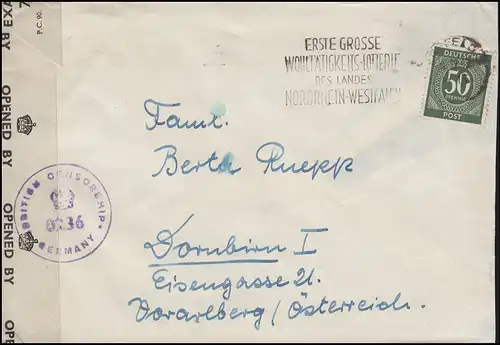 P.C. 90.
OPENED BY
OPENED BY
BRITISH CENSORSHIP
GERMANY
ERSTE GROSSE
WOHLTÄTIGKEITS-LOTTERIE
DES LANDES
NORDRHEIN-WESTFALEN
DEUTSCHE
50
PFENNIG
POST
Faml.
Berta Ruepp
Dornbirn I
Eisengasse 21.
Vorarlberg / Österreich.